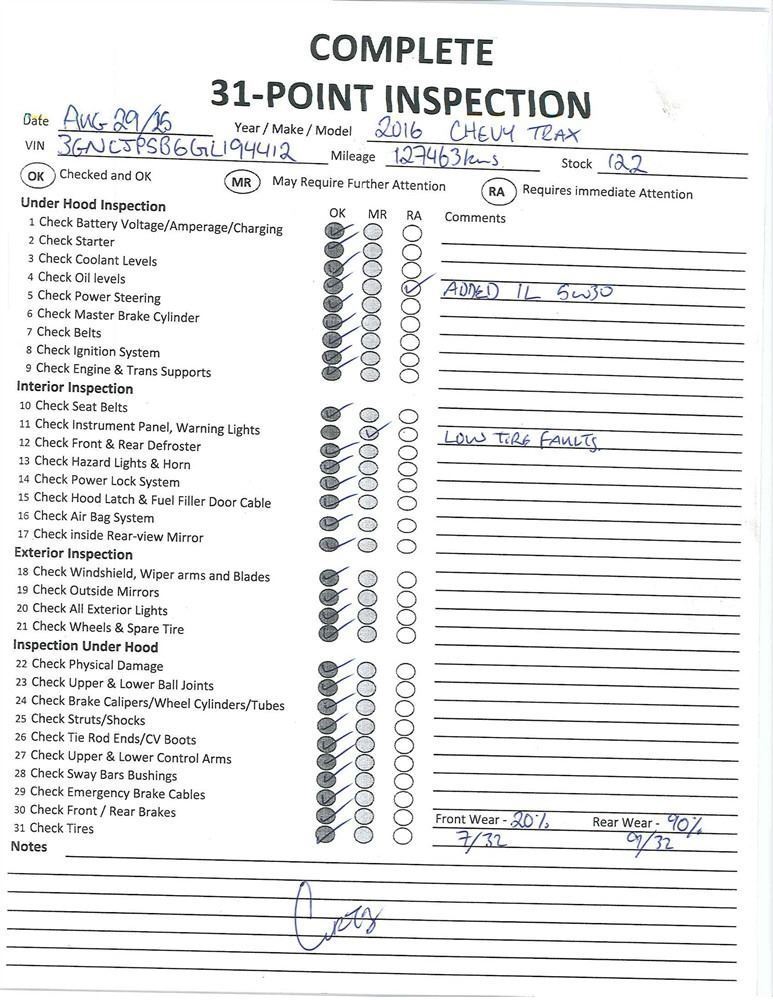 COMPLETE
31-POINT INSPECTION
Date AUG 29/25 Year / Make / Model 2016 CHEVY TRAX
VIN 3GNCJPSB6GL194412 Mileage 127463 kms Stock 122
OK Checked and OK MR May Require Further Attention RA Requires immediate Attention
Under Hood Inspection OK MR RA Comments
1 Check Battery Voltage/Amperage/Charging
2 Check Starter
3 Check Coolant Levels
4 Check Oil levels ADDED 1L 5W30
5 Check Power Steering
6 Check Master Brake Cylinder
7 Check Belts
8 Check Ignition System
9 Check Engine & Trans Supports
Interior Inspection
10 Check Seat Belts
11 Check Instrument Panel, Warning Lights LOW TIRE FAULTS.
12 Check Front & Rear Defroster
13 Check Hazard Lights & Horn
14 Check Power Lock System
15 Check Hood Latch & Fuel Filler Door Cable
16 Check Air Bag System
17 Check inside Rear-view Mirror
Exterior Inspection
18 Check Windshield, Wiper arms and Blades
19 Check Outside Mirrors
20 Check All Exterior Lights
21 Check Wheels & Spare Tire
Inspection Under Hood
22 Check Physical Damage
23 Check Upper & Lower Ball Joints
24 Check Brake Calipers/Wheel Cylinders/Tubes
25 Check Struts/Shocks
26 Check Tie Rod Ends/CV Boots
27 Check Upper & Lower Control Arms
28 Check Sway Bars Bushings
29 Check Emergency Brake Cables
30 Check Front / Rear Brakes Front Wear - 20% Rear Wear - 90%
31 Check Tires 7/32 9/32
Notes